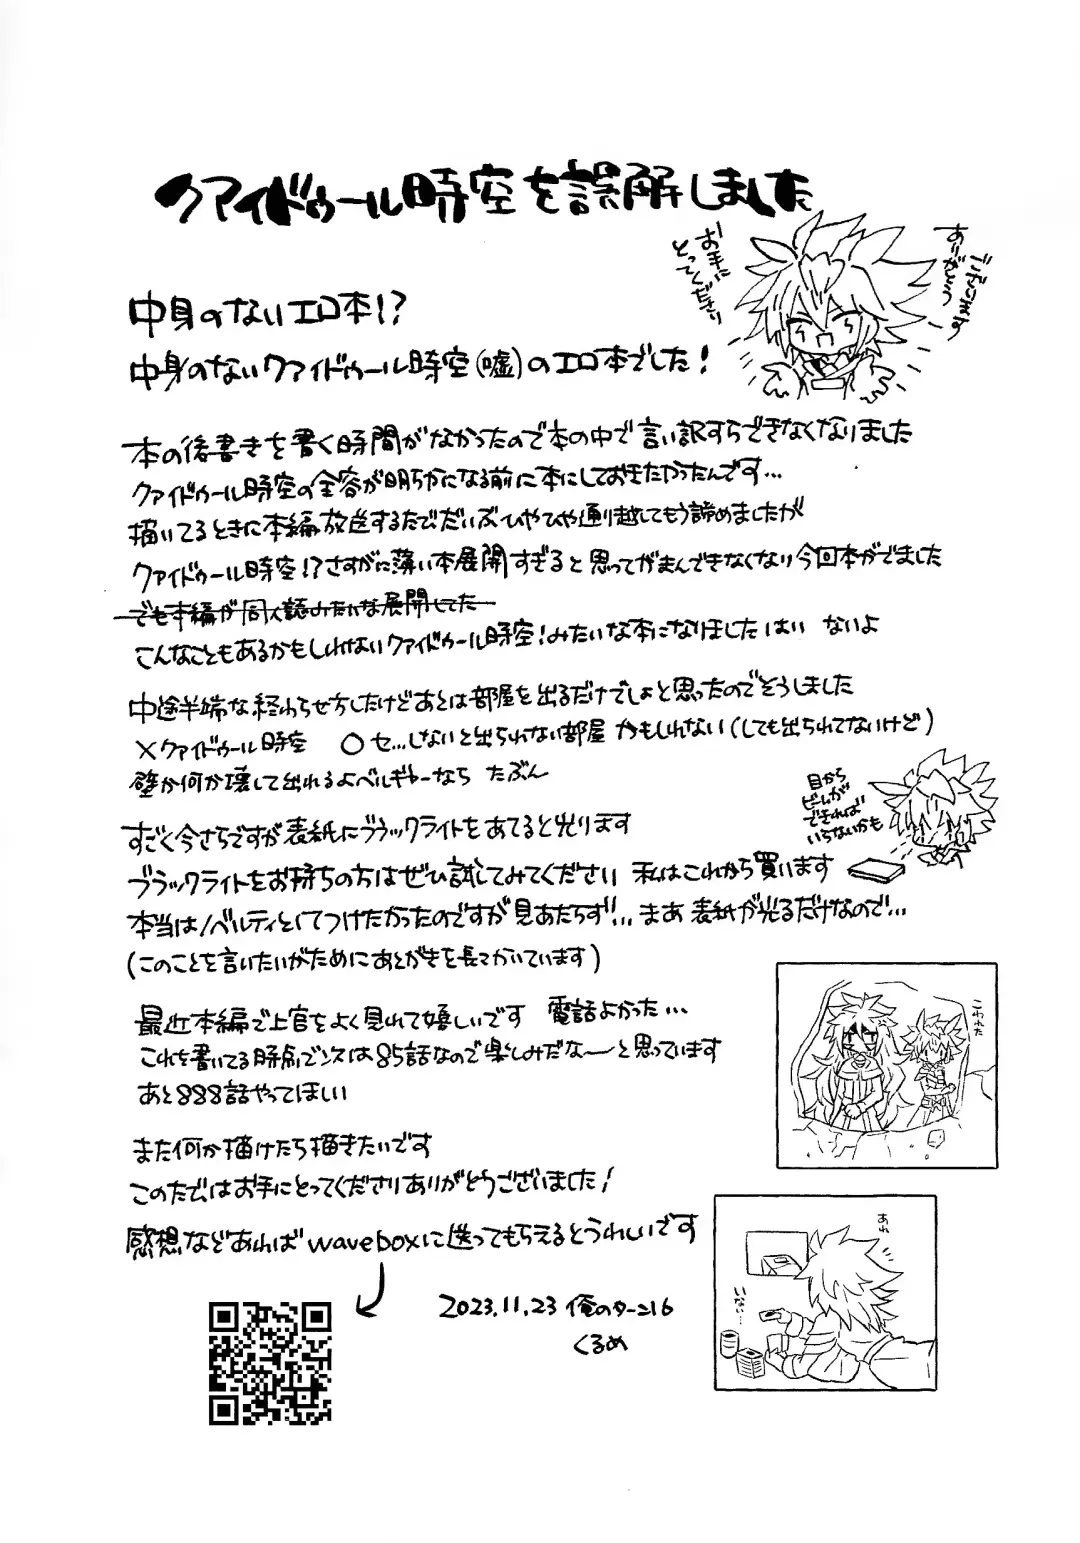 クァイドゥール時空を誤解しました
お手に
とってくださり
ありがとう
ございます
中身のないエロ本!?
中身のないクァイドゥール時空(嘘)のエロ本でした!
本の後書きを書く時間がなかったので本の中で言い訳すらできなくなりました
クァイドゥール時空の全容が明らかになる前に本にしておきたかったんです…
描いてるときに本編放送するたびだいぶひやひや通り越してもう諦めましたが
クァイドゥール時空!?さすがに薄い本展開すぎると思ってがまんできなくなり今回本がでました
でも本編が同人誌みたいな展開してた
こんなこともあるかもしれないクァイドゥール時空!みたいな本になりました はい ないよ
中途半端な終わらせ方したけどあとは部屋を出るだけでしょと思ったのでそうしました
×クァイドゥール時空 ○セ…しないと出られない部屋 かもしれない(しても出られてないけど)
壁か何か壊して出れるよベルギャーなら たぶん
目から
ビームが
できれば
いらないかも
すごく今さらですが表紙にブラックライトをあてると光ります
ブラックライトをお持ちの方はぜひ試してみてください 私はこれから買います
本当はノベルティとしてつけたかったのですが見あたらず!… まあ表紙が光るだけなので…
(このことを言いたいがためにあとがきを長々かいています)
最近本編で上官をよく見れて嬉しいです 電話よかった…
これを書いてる時点でソスは85話なので楽しみだなーと思っています
あと888話やってほしい
こわれた
また何か描けたら描きたいです
このたびはお手にとってくださりありがとうございました!
感想などあればwaveboxに送ってもらえるとうれしいです
あれ
いない…
2023.11.23 俺のターン16
くるめ